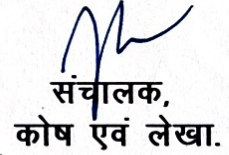 संचालक,
कोष एवं लेखा.